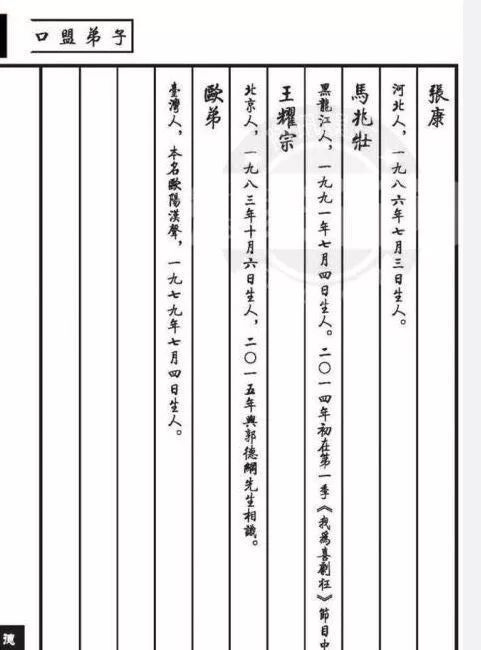 口盟弟子
張康
河北人，一九八六年七月三日生人。
馬兆壯
黑龍江人，一九九一年七月四日生人。二〇一四年初在第一季《我爲喜劇狂》節目中
王耀宗
北京人，一九八三年十月六日生人，二〇一五年與郭德綱先生相識。
歐弟
臺灣人，本名歐陽漢聲，一九七九年七月四日生人。
德